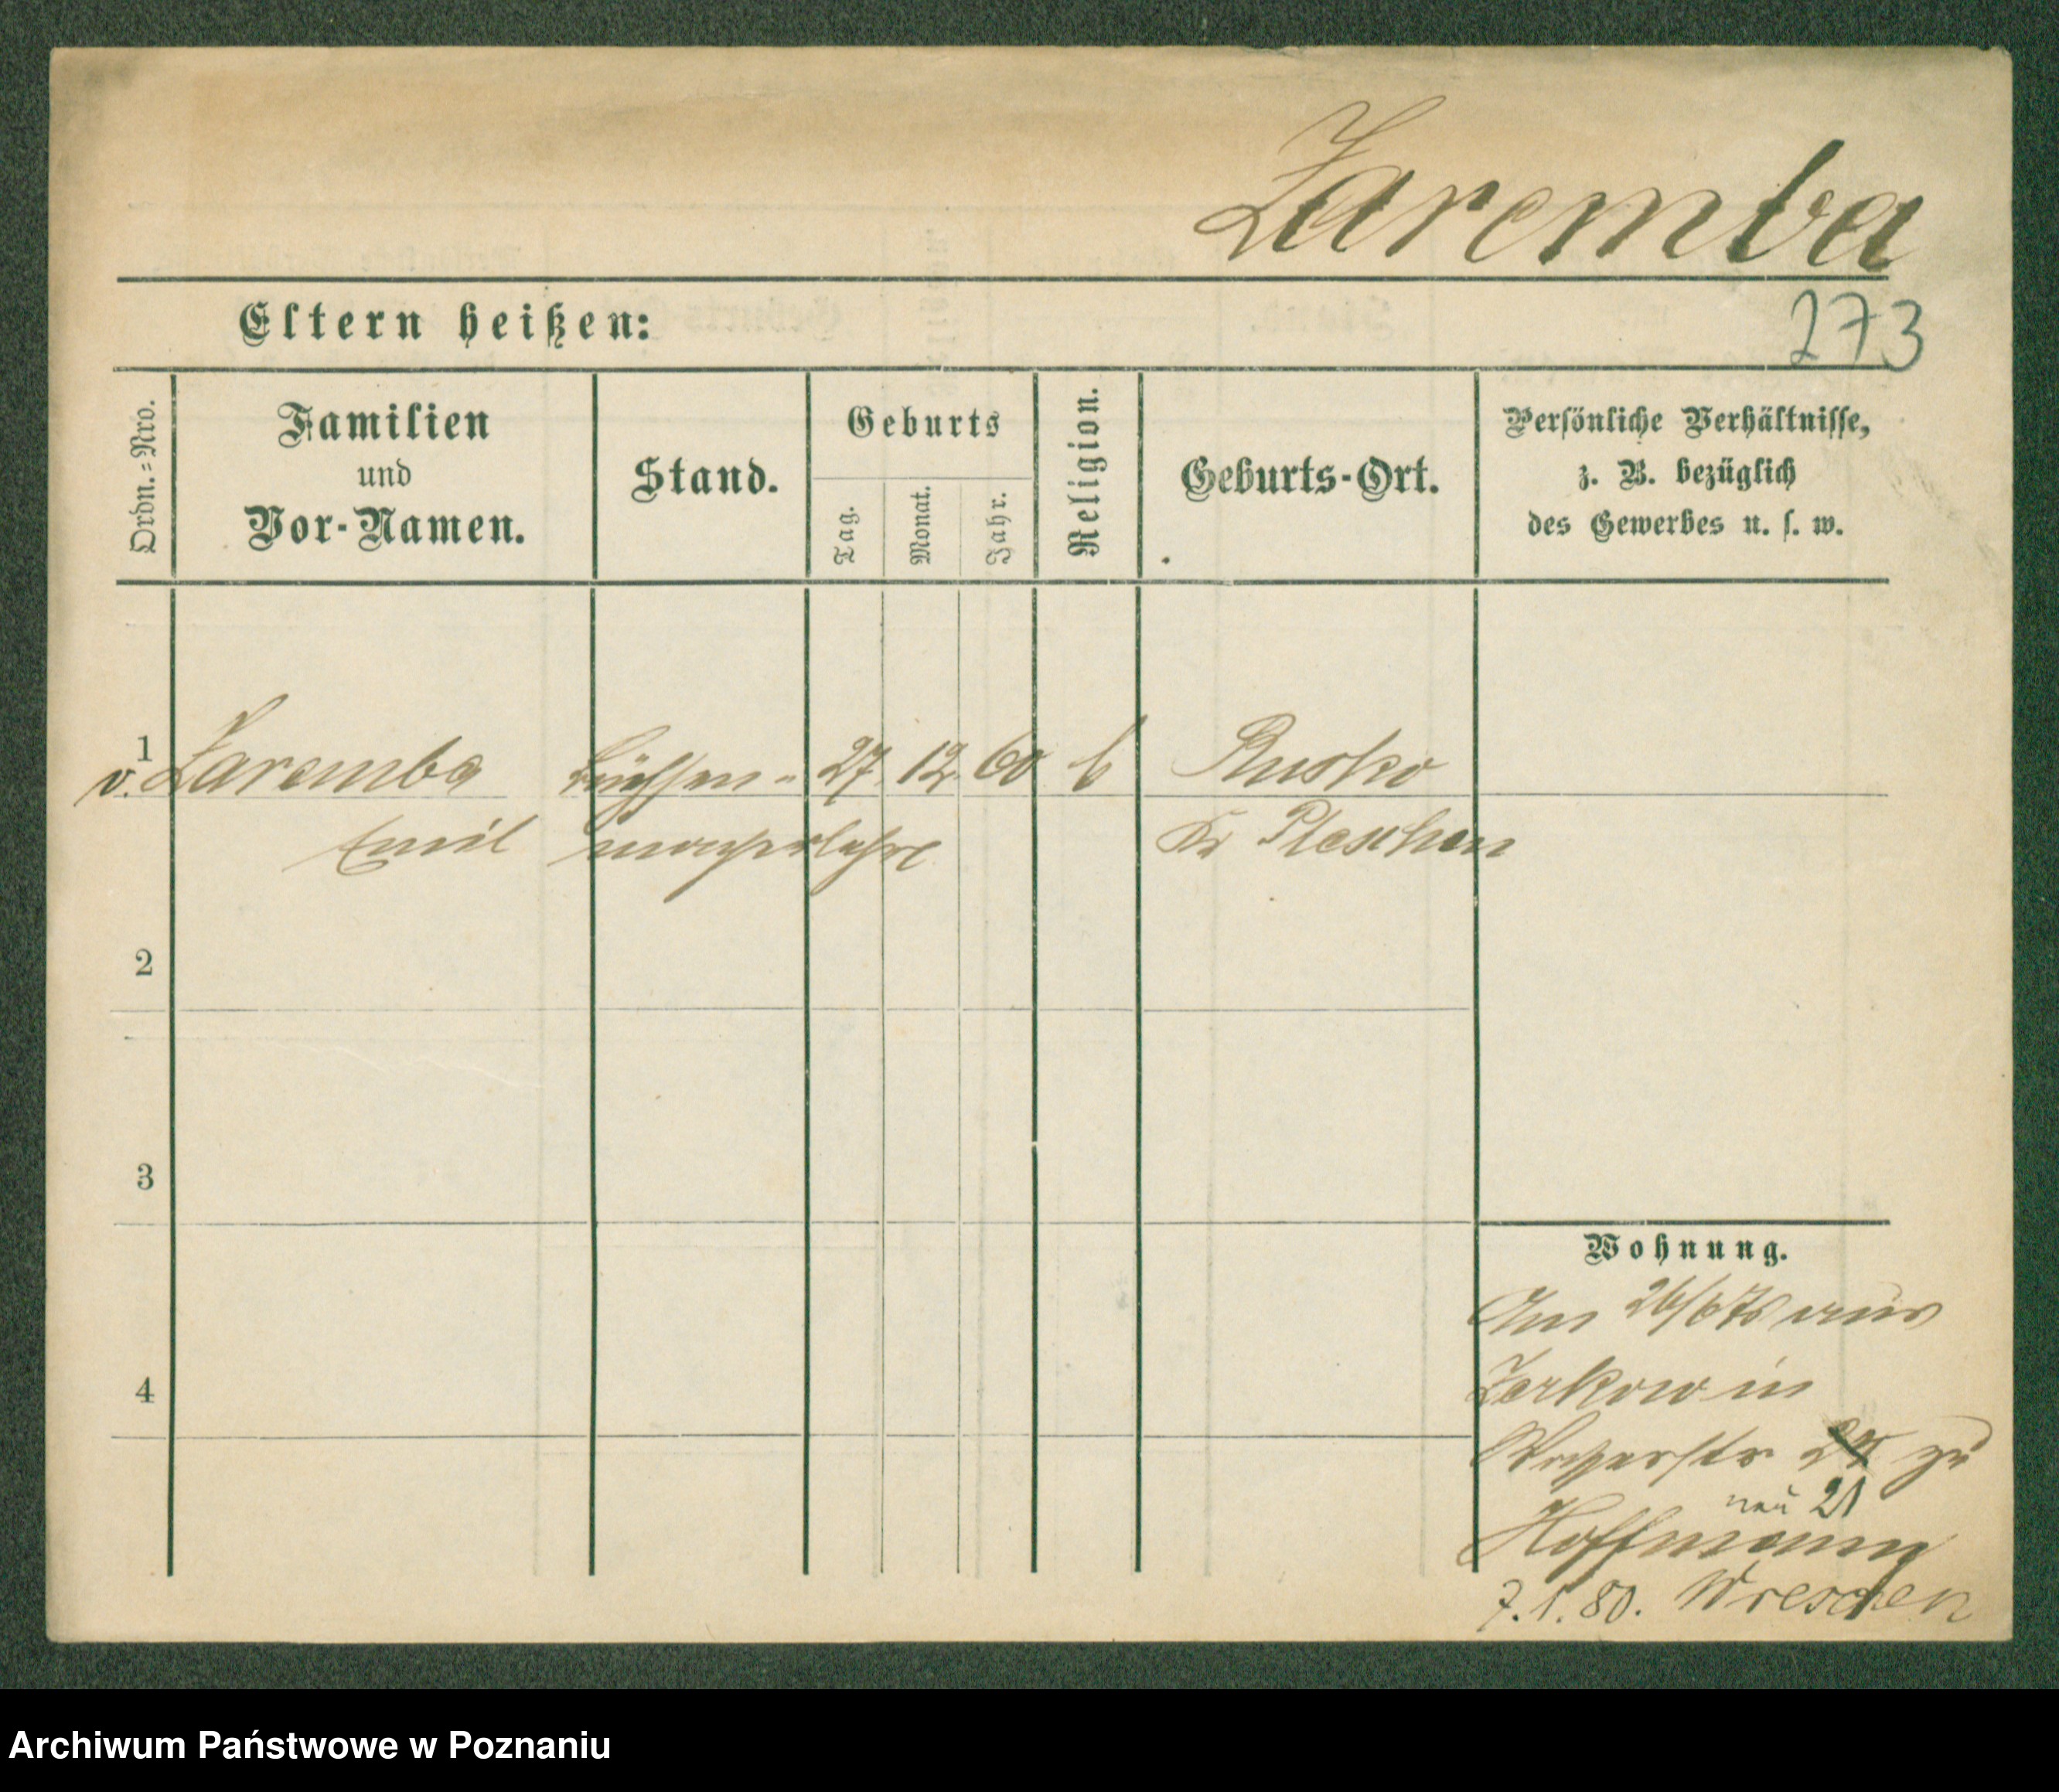 Zaremba
273
Eltern heißen:
Ordn.=Nro.
Familien
und
Vor-Namen.
Stand.
Geburts
Tag.
Monat.
Jahr.
Religion.
Geburts-Ort.
Persönliche Verhältnisse,
z. B. bezüglich
des Gewerbes u. s. w.
1 v. Zaremba Büchsen- 27. 12. 60 k Rusko
Emil macherlehrl Kr Pleschen
2
3
4
Wohnung.
Am 26/6 78 aus
Zerkow in
Wasserstr zu
neu 21
Hoffmann
7.1.80. Wreschen
Archiwum Państwowe w Poznaniu